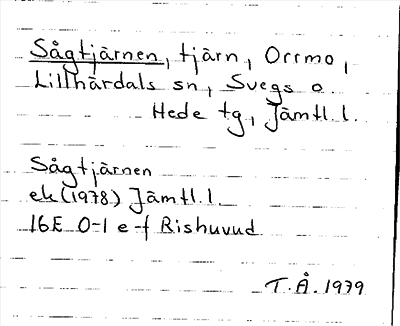 Sågtjärnen, tjärn, Orrmo,
Lillhärdals sn, Svegs o.
Hede tg, Jämtl.l.
Sågtjärnen
ek(1978) Jämtl.l.
16E 0-1 e-f Rishuvud
T.Å.1979